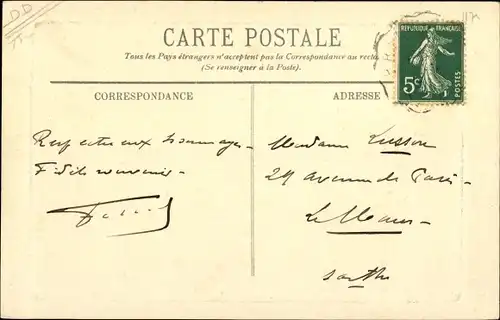 DD
CARTE POSTALE
Tous les Pays étrangers n'acceptent pas la Correspondance au recto
(Se renseigner à la Poste).
RÉPUBLIQUE FRANÇAISE
5c
POSTES
CORRESPONDANCE
ADRESSE
Respectueux hommages
Fidèle souvenir
Madame Lusson
24 avenue de Paris
Le Mans
Sarthe